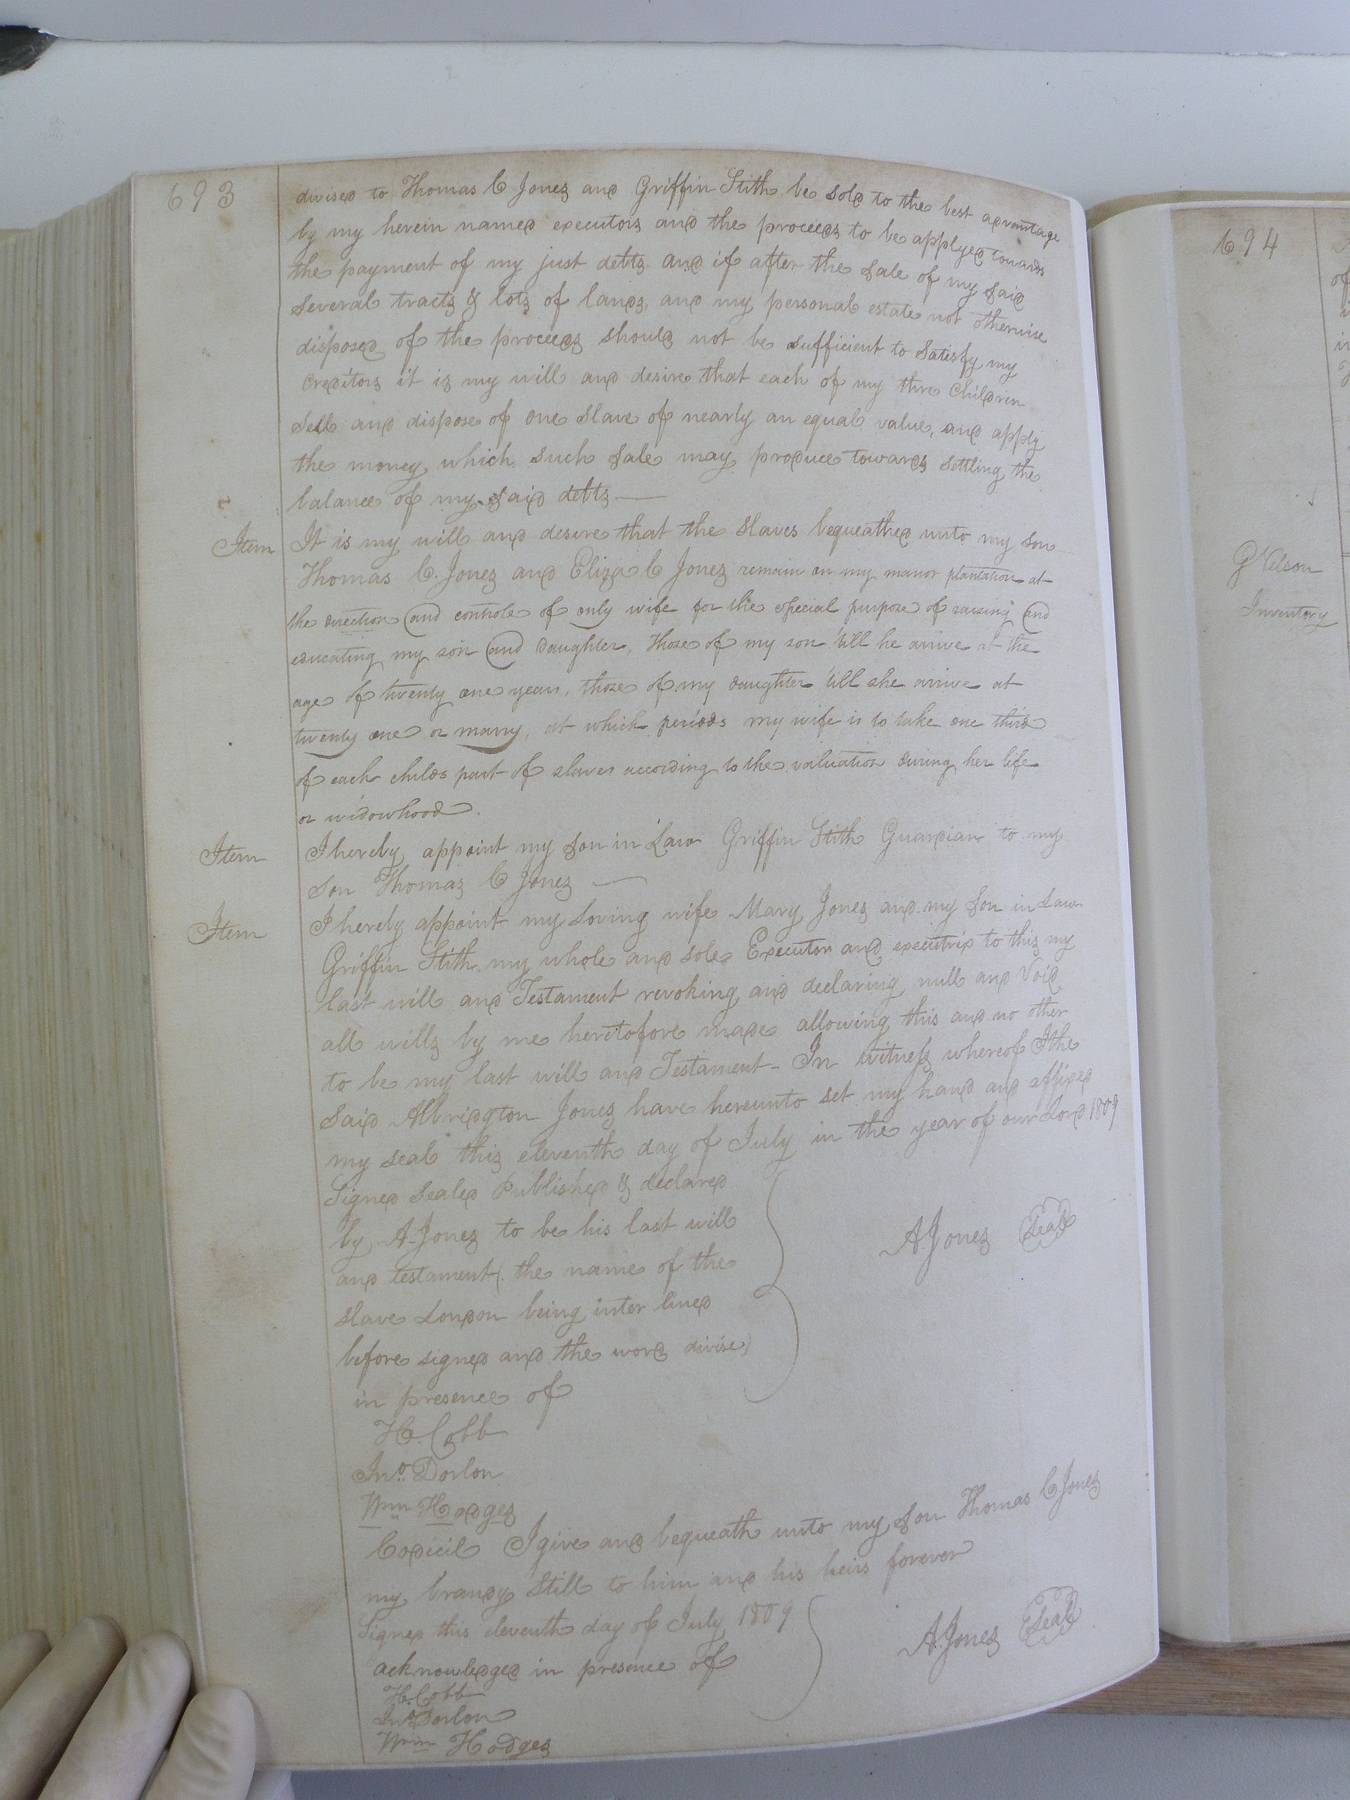 693
divised to Thomas C Jones and Griffin Stith be sold to the best advantage
by my herein named executors and the proceeds to be applyed towards
the payment of my just debts and if after the sale of my said
several tracts & lots of lands, and my personal estate not otherwise
disposed of the proceeds should not be sufficient to satisfy my
Creditors it is my will and desire that each of my thre Children
Sell and dispose of one slave of nearly an equal value, and apply
the money which such sale may produce towards settling the
balance of my said debts
Item It is my will and desire that the slaves bequeathed unto my son
Thomas C. Jones and Eliza C Jones remain on my manor plantation at
the direction and controle of only wife for the special purpose of raising and
educating my son and daughter, those of my son till he arrive at the
age of twenty one years, those of my daughter till she arrive at
twenty one or marry, at which periods my wife is to take one third
of each childs part of slaves according to the valuation during her life
or widowhood.
Item I hereby appoint my son in Law Griffin Stith Guardian to my
son Thomas C Jones
Item I hereby appoint my loving wife Mary Jones and my son in Law
Griffin Stith my whole and sole Executor and executrix to this my
last will and Testament revoking and declaring null and void
all wills by me heretofore made allowing this and no other
to be my last will and Testament - In witness whereof I the
said Albridgton Jones have hereunto set my hand and affixed
my seal this eleventh day of July in the year of our Lord 1809
Signed Sealed Published & declared
by A. Jones to be his last will
and testament (the name of the
slave London being inter lined
before signed and the word divise)
in presence of
A. Jones Seal
H. Cobb
Jno. Dorlon
Wm Hodges
Codicil I give and bequeath unto my son Thomas C Jones
my brandy Still to him and his heirs forever
Signed this eleventh day of July 1809
acknowledged in presence of
A. Jones Seal
H. Cobb
Jno Dorlon
Wm Hodges
694
Inventory